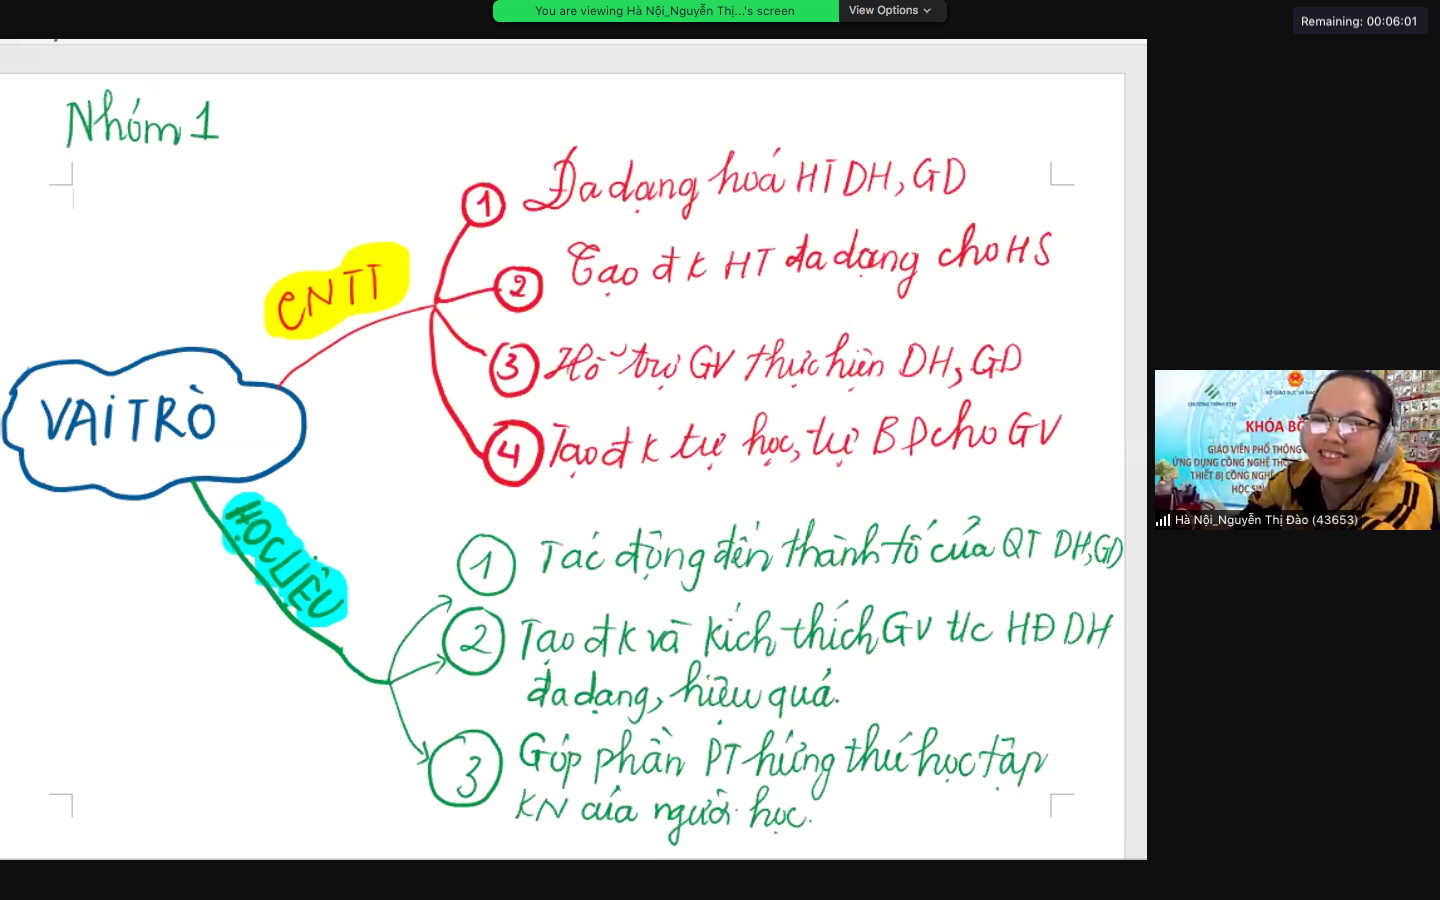 You are viewing Hà Nội_Nguyễn Thị...'s screen
View Options
Remaining: 00:06:01
Nhóm 1
1 Đa dạng hoá HT DH, GD
2 Tạo đk HT đa dạng cho HS
CNTT
3 Hỗ trợ GV thực hiện DH, GD
VAI TRÒ
4 Tạo đk tự học, tự BD cho GV
HỌC LIỆU
1 Tác động đến thành tố của QT DH, GD
2 Tạo đk và kích thích GV t/c HĐ DH
đa dạng, hiệu quả.
3 Góp phần PT hứng thú học tập
KN của người học.
CHƯƠNG TRÌNH ETEP
BỘ GIÁO DỤC VÀ ĐÀO
KHÓA BỒ
GIÁO VIÊN PHỔ THÔNG
ỨNG DỤNG CÔNG NGHỆ TH
THIẾT BỊ CÔNG NGHỆ
HỌC SIN
Hà Nội_Nguyễn Thị Đào (43653)